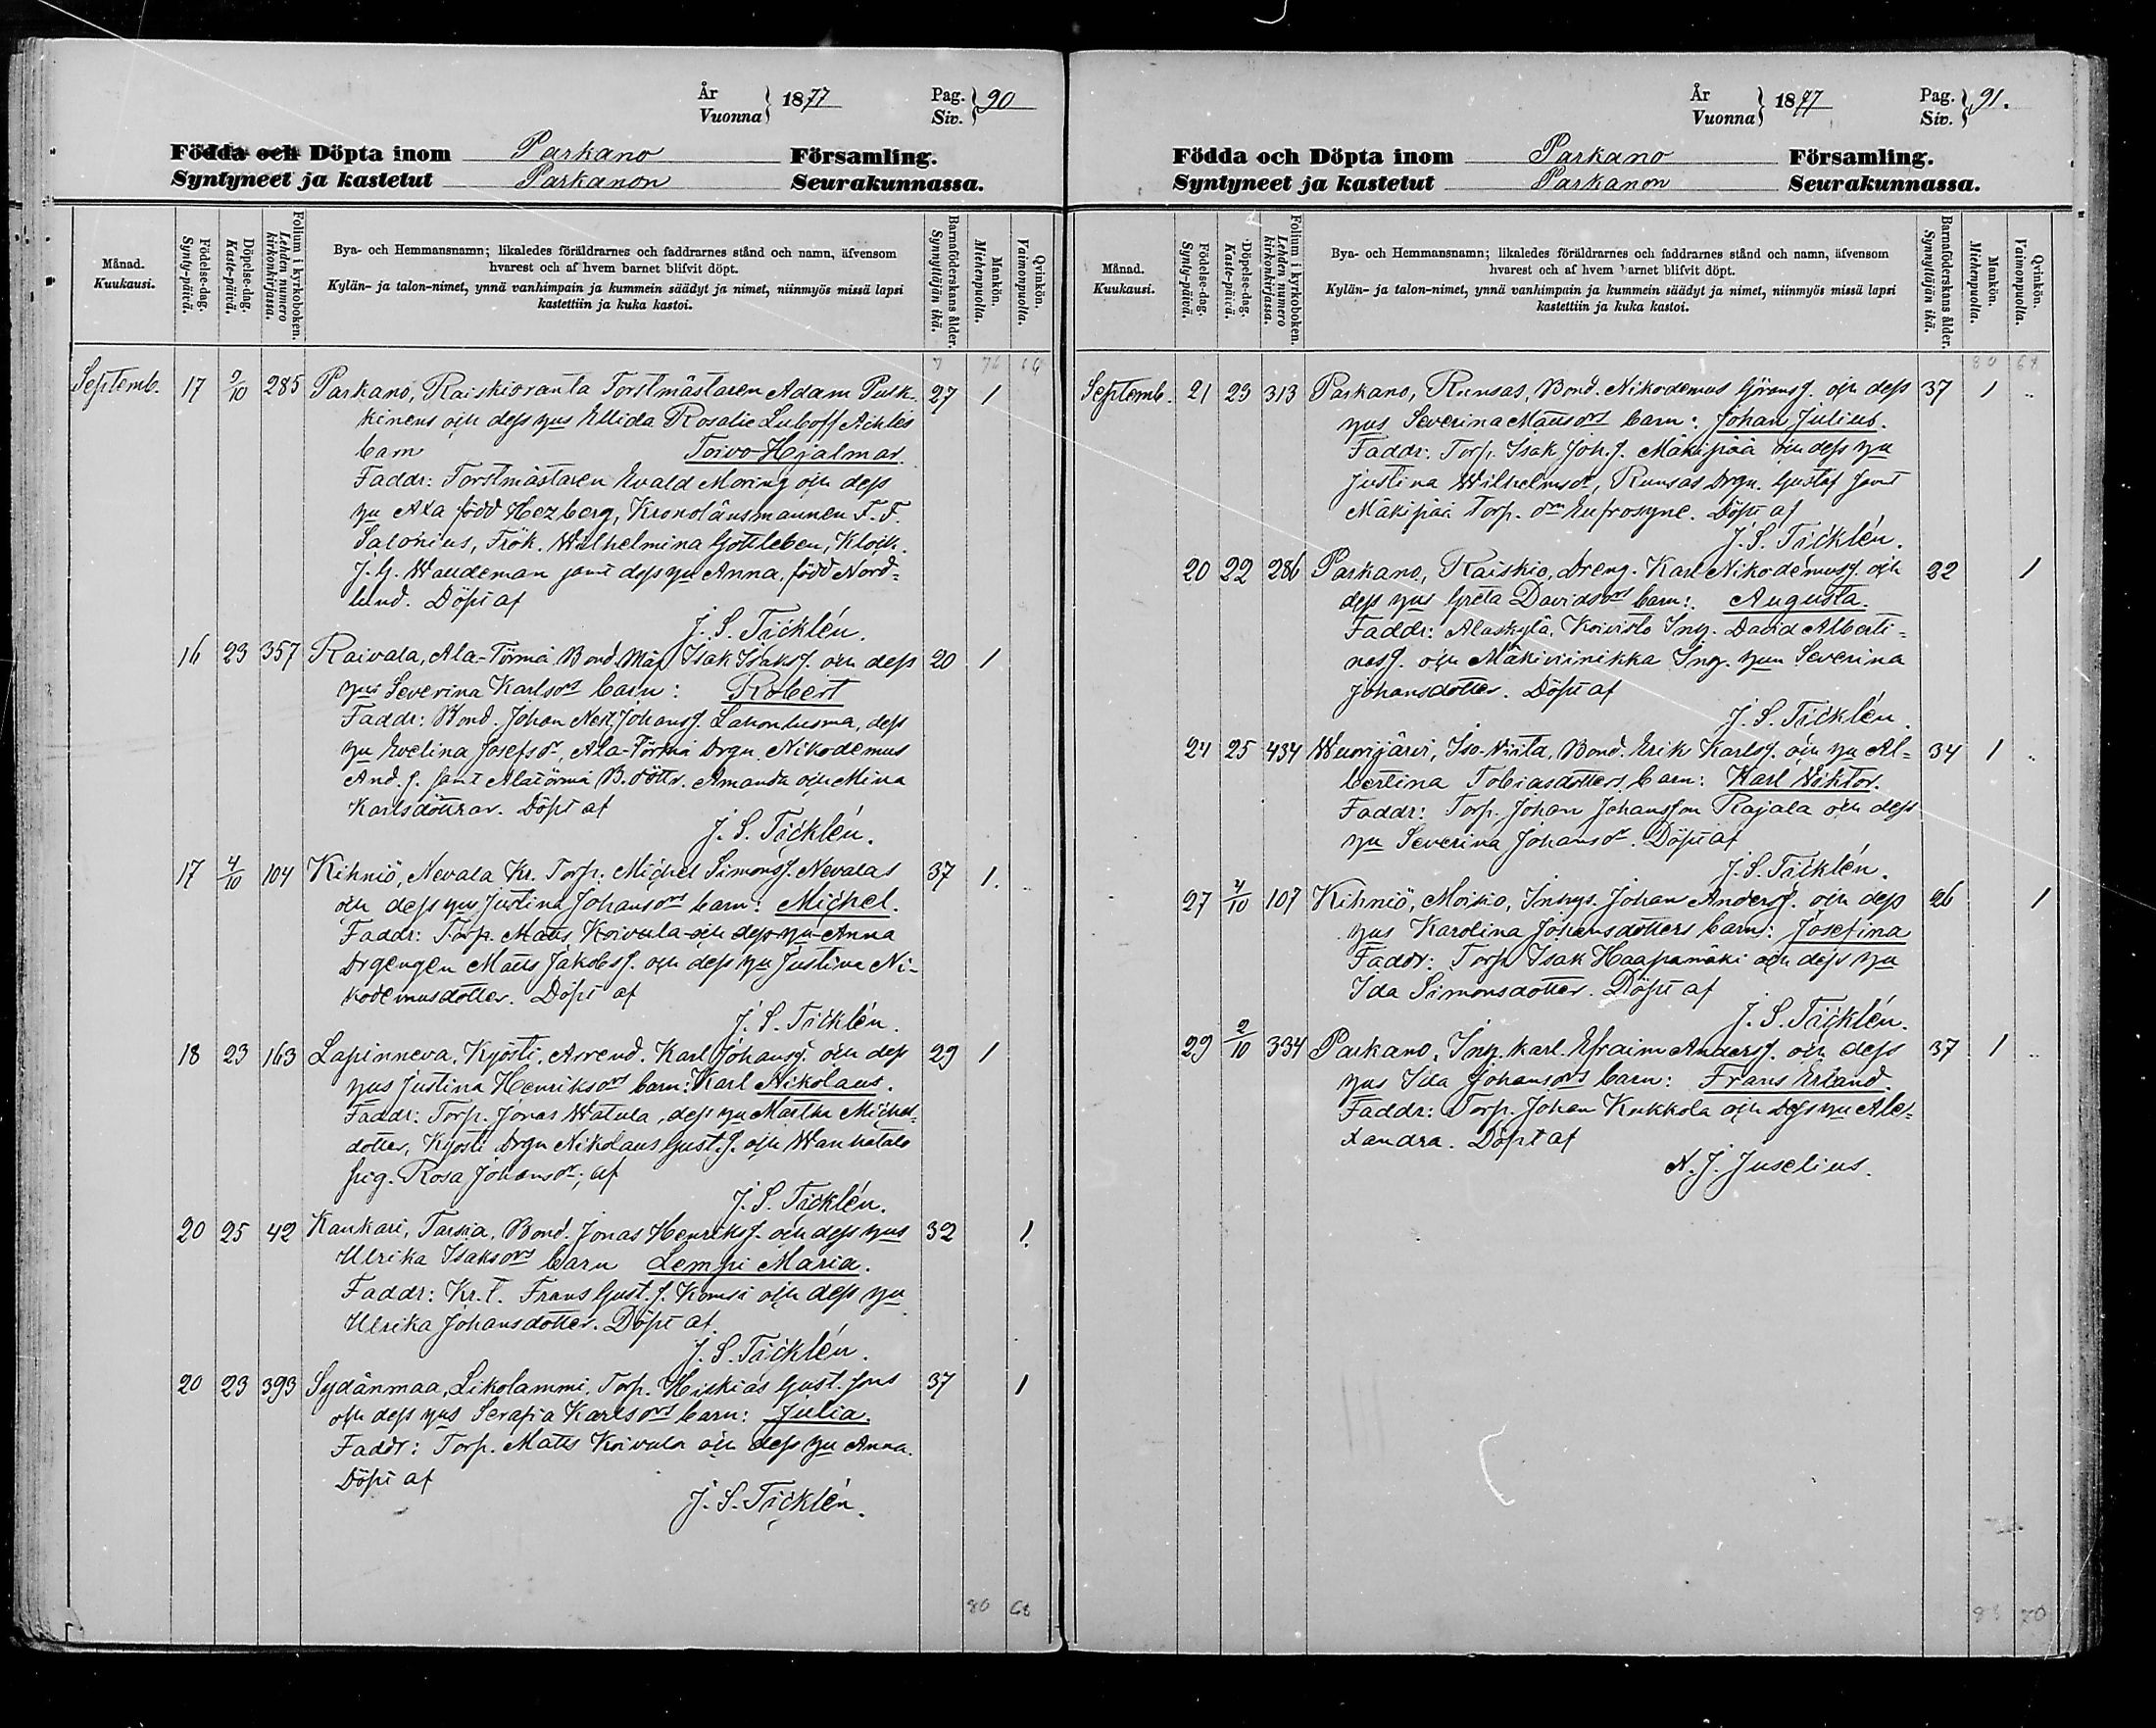 År
Vuonna } 1877
Pag.
Siv. } 90
Födda och Döpta inom Parkano Församling.
Syntyneet ja kastetut Parkanon Seurakunnassa.
Månad.
Kuukausi.
Födelse-dag.
Synty-päivä.
Döpelse-dag.
Kaste-päivä.
Folium i kyrkoboken.
Lehden numero
kirkonkirjassa.
Bya- och Hemmansnamn; likaledes föräldrarnes och faddrarnes stånd och namn, äfvensom
hvarest och af hvem barnet blifvit döpt.
Kylän- ja talon-nimet, ynnä vanhimpain ja kummein säädyt ja nimet, niinmyös missä lapsi
kastettiin ja kuka kastoi.
Barnaföderskans ålder.
Synnyttäjän ikä.
Mankön.
Miehenpuolia.
Qvinkön.
Vaimonpuolia.
76 64
Septemb. 17 2/10 285 Parkano, Raiskioranta Forstmästaren Adam Pusk- 27 1
kinens och dess hus Ellida Rosalie Luboff Achtés
barn Toivo Hjalmar.
Faddr: Forstmästaren Evald Moring och dess
hu Axa född Hezberg, Kronolänsmannen F. F.
Salonius, Frök. Wilhelmina Gottleben, Klock.
J. G. Wandeman samt dess hu Anna, född Nord-
lund. Döpt af
J. S. Täcklén.
16 23 357 Raivala, Ala-Törmä Bond. Måg Isak Isakss. och dess 20 1
hus Severina Karlsdrs barn: Robert
Faddr: Bond. Johan Nest. Johanss. Lahontusma, dess
hu Evelina Josefsdr, Ala-Törmä Drgn. Nikodemus
And. s. samt Alatörmä B. döttr. Amanda och Mina
Karlsdöttrar. Döpt af
J. S. Täcklén.
17 4/10 104 Kihniö, Nevala Kr. Torp. Michel Simonss. Nevalas 37 1.
och dess hus Justina Johansdrs barn: Michel.
Faddr: Torp. Matts Koivula och dess hu Anna
Drgengen Matts Jakobss. och dess hu Justina Ni-
kodemusdotter. Döpt af
J. S. Täcklén.
18 23 163 Lapinneva, Kyösti, Arrend. Karl Johanss. och dess 29 1
hus Justina Henriksdrs barn: Karl Nikolaus.
Faddr: Torp. Jonas Watula, dess hu Martha Michels-
dotter, Kyösti Drgn Nikolaus Gust. s. och Wanhatalo
pig. Rosa Johansdr; af
J. S. Täcklén.
20 25 42 Kankari, Tarsia, Bond. Jonas Henrikss. och dess hus 32 1.
Ulrika Isaksdrs barn Lempi Maria.
Faddr: Kr. T. Frans Gust. s. Komsi och dess hu
Ulrika Johansdotter. Döpt af
J. S. Täcklén.
20 23 393 Sydänmaa, Likolammi, Torp. Hiskias Gust. sons 37 1
och dess hus Serafia Karlsdrs barn: Julia.
Faddr: Torp. Matts Koivula och dess hu Anna.
Döpt af
J. S. Täcklén.
80 68
År
Vuonna } 1877
Pag.
Siv. } 91.
Födda och Döpta inom Parkano Församling.
Syntyneet ja kastetut Parkanon Seurakunnassa.
Månad.
Kuukausi.
Födelse-dag.
Synty-päivä.
Döpelse-dag.
Kaste-päivä.
Folium i kyrkoboken.
Lehden numero
kirkonkirjassa.
Bya- och Hemmansnamn; likaledes föräldrarnes och faddrarnes stånd och namn, äfvensom
hvarest och af hvem barnet blifvit döpt.
Kylän- ja talon-nimet, ynnä vanhimpain ja kummein säädyt ja nimet, niinmyös missä lapsi
kastettiin ja kuka kastoi.
Barnaföderskans ålder.
Synnyttäjän ikä.
Mankön.
Miehenpuolia.
Qvinkön.
Vaimonpuolia.
80 68
Septemb. 21 23 313 Parkano, Runsas, Bond. Nikodemus Göranss. och dess 37 1
hus Severina Mansdrs barn: Johan Julius.
Faddr: Torp. Isak Joh. s. Mäkipää och dess hu
Justina Wilhelmsdr, Runsas Drgn. Gustaf samt
Mäkipää Torp. drn Eufrosyne. Döpt af
J. S. Täcklén.
20 22 286 Parkano, Raiskio, Dreng. Karl Nikodemuss. och 22 1
dess hus Greta Davidsdrs barn: Augusta.
Faddr: Alaskylä, Koivisto Ing. David Alberti-
nass. och Mäkiviinikka Ing. hun Severina
Johansdotter. Döpt af
J. S. Täcklén.
24 25 434 Wuorijärvi, Iso-Wiita, Bond. Erik Karlss. och hu Al- 34 1
bertina Tobiasdotters barn: Karl Wiktor.
Faddr: Torp. Johan Johansson Rajala och dess
hu Severina Johansdr. Döpt af
J. S. Täcklén.
27 4/10 107 Kihniö, Moisio, Inhys. Johan Anderss. och dess 26 1
hus Karolina Johansdotters barn: Josefina
Faddr: Torp. Isak Haapamäki och dess hu
Ida Simonsdotter. Döpt af
J. S. Täcklén.
29 2/10 334 Parkano, Ing. karl. Efraim Anderss. och dess 37 1
hus Ida Johansdrs barn: Frans Erland.
Faddr: Torp. Johan Kukkola och dess hu Ale-
xandra. Döpt af
N. J. Juselius.
83 70